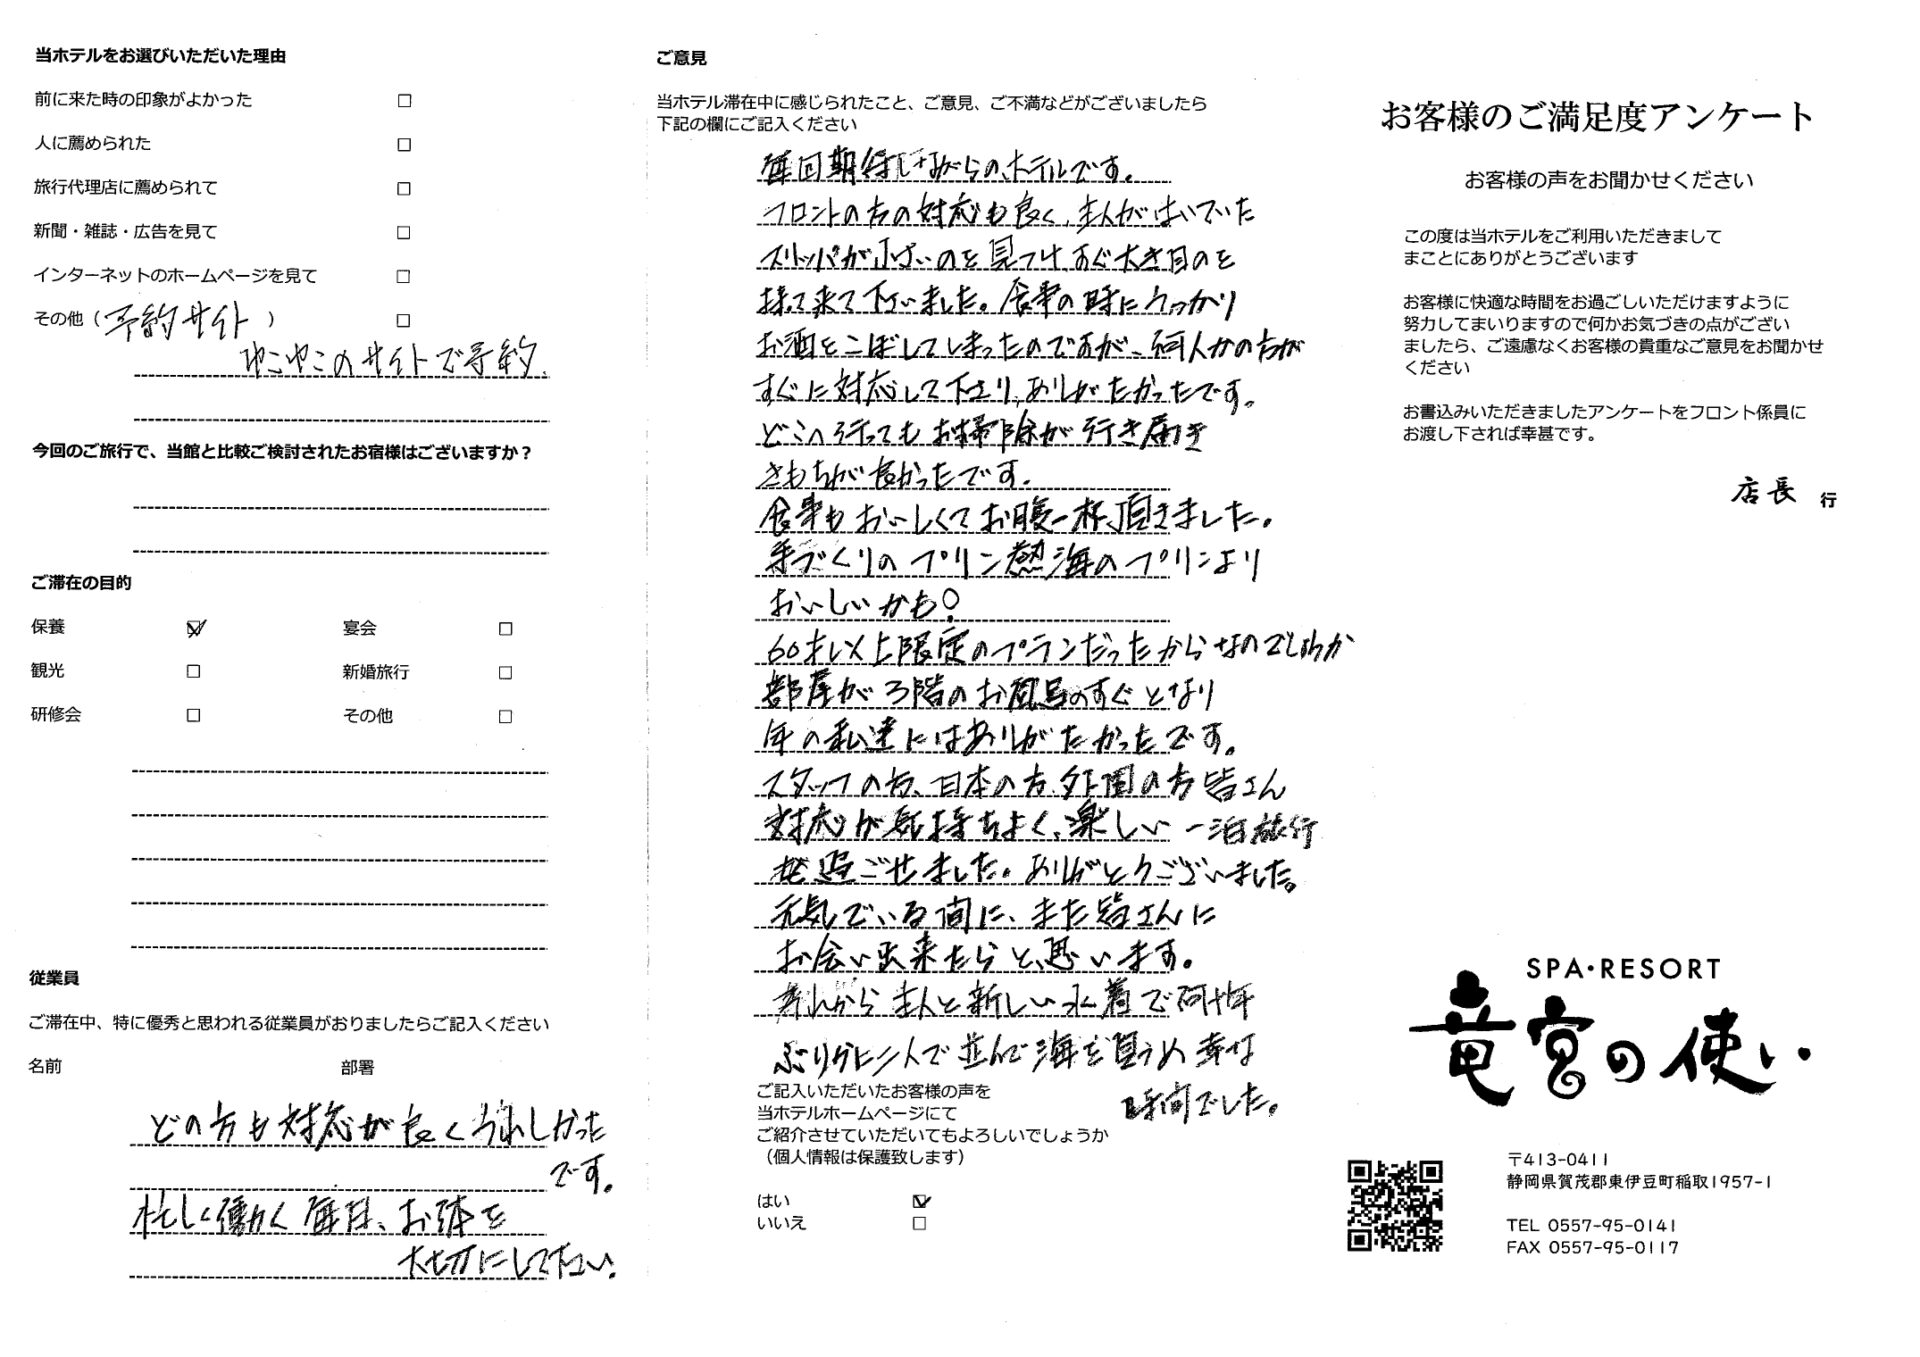 当ホテルをお選びいただいた理由
前に来た時の印象がよかった □
人に薦められた □
旅行代理店に薦められて □
新聞・雑誌・広告を見て □
インターネットのホームページを見て □
その他（予約サイト） □
ゆこゆこのサイトで予約.
今回のご旅行で、当館と比較ご検討されたお宿様はございますか？
ご滞在の目的
保養 ☑ 宴会 □
観光 □ 新婚旅行 □
研修会 □ その他 □
従業員
ご滞在中、特に優秀と思われる従業員がおりましたらご記入ください
名前 部署
どの方も対応が良くうれしかった
です。
忙しく働く毎日、お体を
大切にして下さい。
ご意見
当ホテル滞在中に感じられたこと、ご意見、ご不満などがございましたら
下記の欄にご記入ください
毎回期待しながらの、ホテルです。
フロントの方の対応も良く、主人がはいていた
スリッパが小さいのを見つけ、すぐ大き目のを
持って来て下さいました。食事の時にうっかり
お酒をこぼしてしまったのですが、何人かの方が
すぐに対応して下さり、ありがたかったです。
どこへ行ってもお掃除が行き届き
きもちが良かったです。
食事もおいしくてお腹一杯頂きました。
手づくりのプリン熱海のプリンより
おいしいかも!
60才以上限定のプランだったからなのでしょうか
部屋が3階のお風呂のすぐとなり
年の私達にはありがたかったです。
スタッフの方、日本の方、外国の方皆さん
対応が気持ちよく、楽しい一泊旅行
を過ごせました。ありがとうございました。
元気でいる間に、また皆さんに
お会い出来たらと、思います。
主人と新しい水着で何十年
ぶりかに二人で並んで海を眺め幸せな
時間でした。
ご記入いただいたお客様の声を
当ホテルホームページにて
ご紹介させていただいてもよろしいでしょうか
（個人情報は保護致します）
はい ☑
いいえ □
お客様のご満足度アンケート
お客様の声をお聞かせください
この度は当ホテルをご利用いただきまして
まことにありがとうございます
お客様に快適な時間をお過ごしいただけますように
努力してまいりますので何かお気づきの点がござい
ましたら、ご遠慮なくお客様の貴重なご意見をお聞かせ
ください
お書込みいただきましたアンケートをフロント係員に
お渡し下されば幸甚です。
店長 行
SPA・RESORT
竜宮の使い
〒413-0411
静岡県賀茂郡東伊豆町稲取1957-1
TEL 0557-95-0141
FAX 0557-95-0117